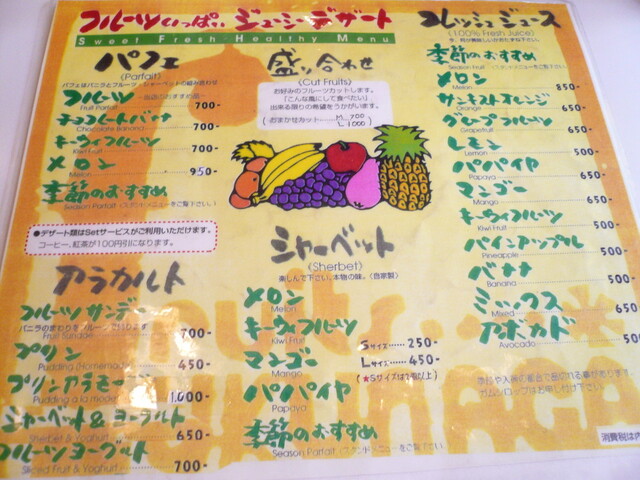 フルーツいっぱい ジューシーデザート
Sweet Fresh Healthy Menu
パフェ
(Parfait)
フルーツ
Fruit Parfait 700-
チョコレートバナナ
Chocolate Banana 700-
キーウィフルーツ
Kiwi Fruit 700-
メロン
Melon 950-
季節のおすすめ
●デザート類はSetサービスがご利用いただけます。
コーヒー、紅茶が100円引になります。
アラカルト
フルーツサンデー
Fruit Sundae 700-
プリン
Pudding (Homemade) 450-
プリンアラモード
Pudding a la mode 1,000-
シャーベット&ヨーグルト
Sherbet & Yoghurt 650-
フルーツヨーグルト
Sliced Fruit & Yoghurt 700-
盛り合わせ
(Cut Fruits)
お好みのフルーツカットします。
「こんな風にして食べたい」
出来る限りの希望をうかがいます。
(おまかせカット M 700 L 1000)
シャーベット
(Sherbet)
楽しんで下さい。本物の味。(自家製)
メロン
Melon
キーウィフルーツ
Kiwi Fruit
マンゴー
Mango
パパイヤ
Papaya
季節のおすすめ
Sサイズ 250-
Lサイズ 450-
フレッシュジュース
(100% Fresh Juice)
季節のおすすめ
メロン
Melon 850-
サンキストオレンジ
Orange 650-
グレープフルーツ
Grapefruit 650-
レモン
Lemon 500-
パパイヤ
Papaya 650-
マンゴー
Mango 650-
キーウィフルーツ
Kiwi Fruit 500-
パインアップル
Pineapple 500-
バナナ
Banana 500-
ミックス
Mixed 650-
アボカド
Avocado 500-
ガムシロップはお申し付け下さい。
消費税は